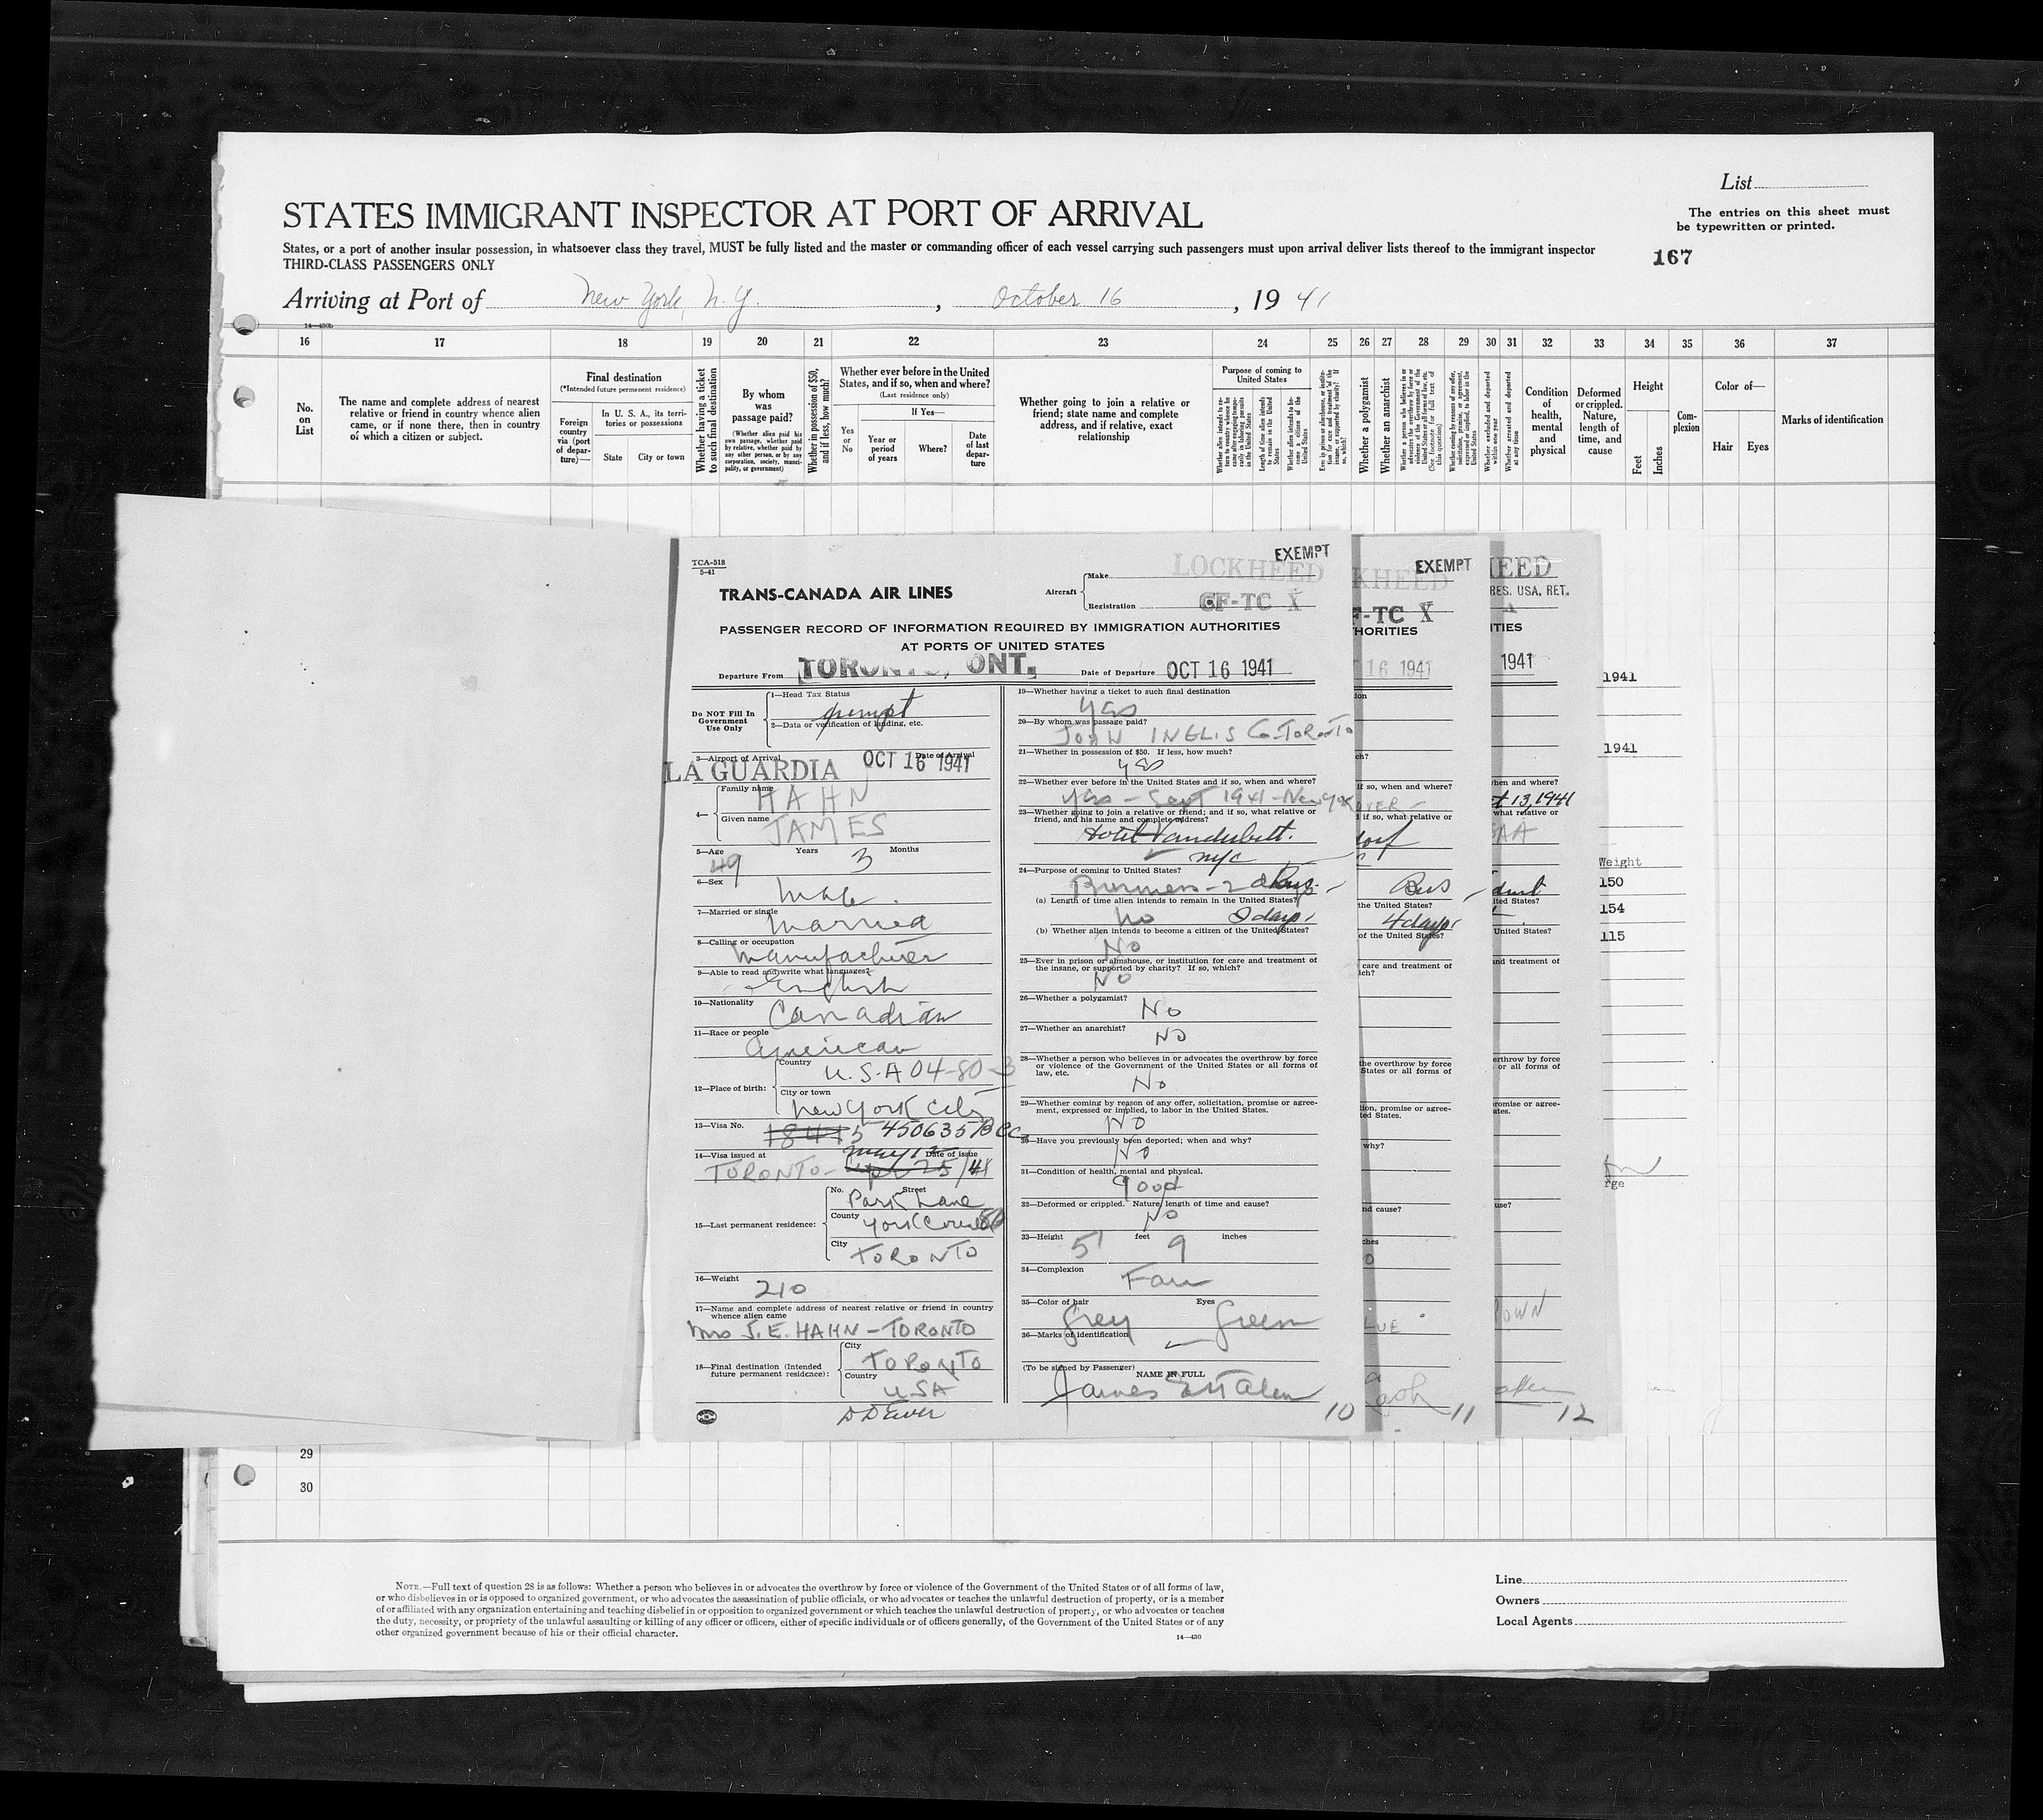 List
STATES IMMIGRANT INSPECTOR AT PORT OF ARRIVAL
The entries on this sheet must
be typewritten or printed.
States, or a port of another insular possession, in whatsoever class they travel, MUST be fully listed and the master or commanding officer of each vessel carrying such passengers must upon arrival deliver lists thereof to the immigrant inspector
THIRD-CLASS PASSENGERS ONLY
167
Arriving at Port of New York, N.Y., October 16, 1941
14—430b
16 17 18 19 20 21 22 23 24 25 26 27 28 29 30 31 32 33 34 35 36 37
No. on List
The name and complete address of nearest relative or friend in country whence alien came, or if none there, then in country of which a citizen or subject.
Final destination
(*Intended future permanent residence)
Foreign country via (port of departure)—
In U. S. A., its territories or possessions
State
City or town
Whether having a ticket to such final destination
By whom was passage paid?
(Whether alien paid his own passage, whether paid by relative, whether paid by any other person, or by any corporation, society, municipality, or government)
Whether in possession of $50, and if less, how much?
Whether ever before in the United States, and if so, when and where?
(Last residence only)
If Yes—
Yes or No
Year or period of years
Where?
Date of last departure
Whether going to join a relative or friend; state name and complete address, and if relative, exact relationship
Purpose of coming to United States
Whether a polygamist
Whether an anarchist
Condition of health, mental and physical
Deformed or crippled. Nature, length of time, and cause
Height
Feet
Inches
Complexion
Color of—
Hair
Eyes
Marks of identification
TCA-518
5-41
TRANS-CANADA AIR LINES
Aircraft
Make LOCKHEED
EXEMPT
Registration CF-TC X
PASSENGER RECORD OF INFORMATION REQUIRED BY IMMIGRATION AUTHORITIES
AT PORTS OF UNITED STATES
Departure From TORONTO, ONT.
Date of Departure OCT 16 1941
Do NOT Fill In
Government
Use Only
1—Head Tax Status
exempt
2—Data or verification of landing, etc.
3—Airport of Arrival LA GUARDIA
Date of Arrival OCT 16 1941
4— Family name HAHN
Given name JAMES
5—Age 49 Years 3 Months
6—Sex Male.
7—Married or single Married
8—Calling or occupation
Manufacturer
9—Able to read and write what languages?
English
10—Nationality Canadian
11—Race or people
American
12—Place of birth: Country U.S.A 04-80-3
City or town
New York City
13—Visa No. 18415 450635
14—Visa issued at TORONTO-
Date of issue
/41
15—Last permanent residence:
No. Street Park Lane
County York
City TORONTO
16—Weight 210
17—Name and complete address of nearest relative or friend in country
whence alien came
Mrs J.E. HAHN - TORONTO
18—Final destination (Intended
future permanent residence):
City TORONTO
Country USA
19—Whether having a ticket to such final destination
yes
20—By whom was passage paid?
JOHN INGLIS Co. TORONTO
21—Whether in possession of $50. If less, how much?
yes
22—Whether ever before in the United States and if so, when and where?
yes - Sept 1941 - New York
23—Whether going to join a relative or friend; and if so, what relative or
friend, and his name and complete address?
Hotel Vanderbilt.
NYC
24—Purpose of coming to United States?
Business - 2 days
(a) Length of time alien intends to remain in the United States?
No
days
(b) Whether alien intends to become a citizen of the United States?
No
25—Ever in prison or almshouse, or institution for care and treatment of
the insane, or supported by charity? If so, which?
No
26—Whether a polygamist? No
27—Whether an anarchist? No
28—Whether a person who believes in or advocates the overthrow by force
or violence of the Government of the United States or all forms of
law, etc.
No
29—Whether coming by reason of any offer, solicitation, promise or agree-
ment, expressed or implied, to labor in the United States.
No
30—Have you previously been deported; when and why?
No
31—Condition of health, mental and physical.
good
32—Deformed or crippled. Nature, length of time and cause?
No
33—Height 5' feet 9 inches
34—Complexion Fair
35—Color of hair Grey
Eyes Green
36—Marks of identification
(To be signed by Passenger)
NAME IN FULL
James
10
EXEMPT
KHEED
F-TC X
HORITIES
16 1941
Bus
4 days
11
HEED
RES. USA, RET.
1941
t 13, 1941
12
1941
1941
Weight
150
154
115
29
30
NOTE.—Full text of question 28 is as follows: Whether a person who believes in or advocates the overthrow by force or violence of the Government of the United States or of all forms of law,
or who disbelieves in or is opposed to organized government, or who advocates the assassination of public officials, or who advocates or teaches the unlawful destruction of property, or is a member
of or affiliated with any organization entertaining and teaching disbelief in or opposition to organized government or which teaches the unlawful destruction of property, or who advocates or teaches
the duty, necessity, or propriety of the unlawful assaulting or killing of any officer or officers, either of specific individuals or of officers generally, of the Government of the United States or of any
other organized government because of his or their official character.
14—430
Line
Owners
Local Agents